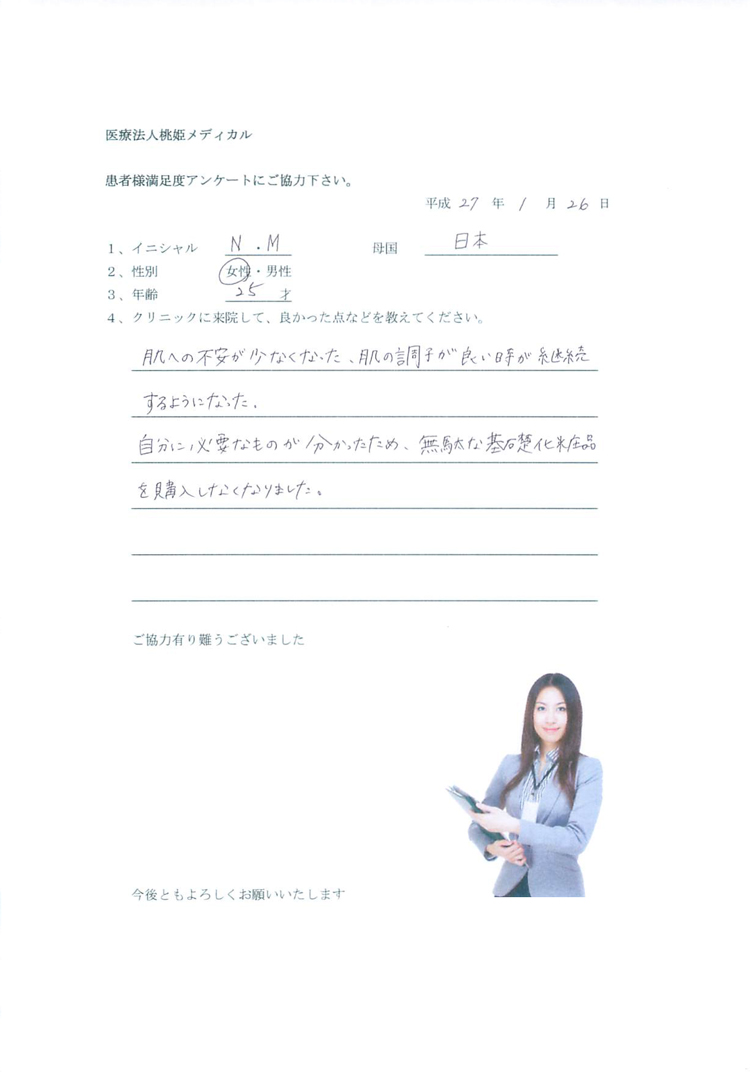 医療法人桃姫メディカル
患者様満足度アンケートにご協力下さい。
平成 27 年 1 月 26 日
1、イニシャル N.M 母国 日本
2、性別 女性・男性
3、年齢 25 才
4、クリニックに来院して、良かった点などを教えてください。
肌への不安が少なくなった、肌の調子が良い時が継続
するようになった.
自分に必要なものが分かったため、無駄な基礎化粧品
を購入しなくなりました。
ご協力有り難うございました
今後ともよろしくお願いいたします